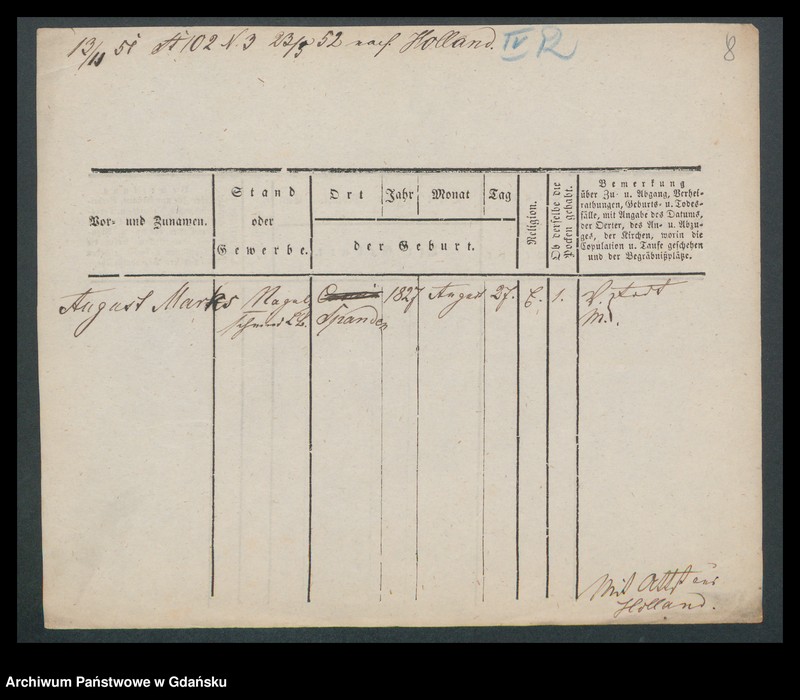 13/11 51 A 102 N. 3 23/3 52 nach Holland. IV R
8
Vor- und Zunamen.
Stand
oder
Gewerbe.
Ort Jahr Monat Tag
der Geburt.
Religion.
Ob derselbe die
Pocken gehabt.
Bemerkung
über Zu- u. Abgang, Verhei-
rathungen, Geburts- u. Todes-
fälle, mit Angabe des Datums,
der Oerter, des An- u. Abzu-
ges, der Kirchen, worin die
Copulation u. Taufe geschehen
und der Begräbnißplätze.
August Marks Nagel 1827 August 27. E. 1. V. todt
schmied Spanden M.
Mit Attst aus
Holland.
Archiwum Państwowe w Gdańsku